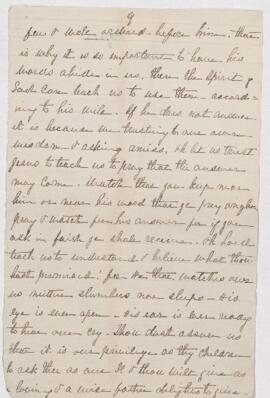 9
fers & wole ordered before him. there
is why it is so important to have his
words abide in us. then the Spirit of
God can teach us to use them accord-
ing to his will. If he does not answer
it is because we trusting to our own
wisdom & asking amiss. Oh let us trust
Jesus to teach us to pray that the answer
may come. Watch that you keep near
him or near his word that ye pray
pray & watch for his answer for if you
ask in faith ye shall receive. Oh Lord
teach us to understand & believe what thou
hast promised. for he that watches over
us neither slumbers nor sleeps. His
eye is ever open. His ear is ever ready
to hear our cry. Thou dost assure us
that it is our privilege as thy children
to ask thee as our & thou wilt give as
a loving & a wise father delights to give